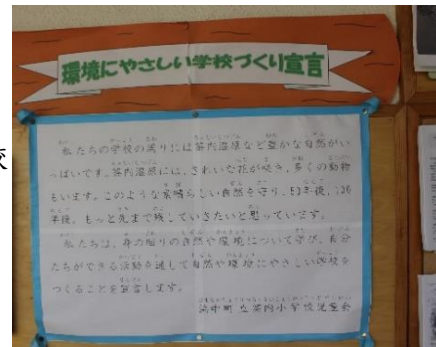 校
環境にやさしい学校づくり宣言
私たちの学校の周りには茶内湿原など豊かな自然がい
っぱいです。茶内湿原には、きれいな花が咲き、多くの動物
もいます。このような素晴らしい自然を守り、50年後、100
年後、もっと先まで残していきたいと思っています。
私たちは、身の周りの自然や環境について学び、自分
たちができる活動を通して自然や環境にやさしい学校を
つくることを宣言します。
浜中町立茶内小学校児童会